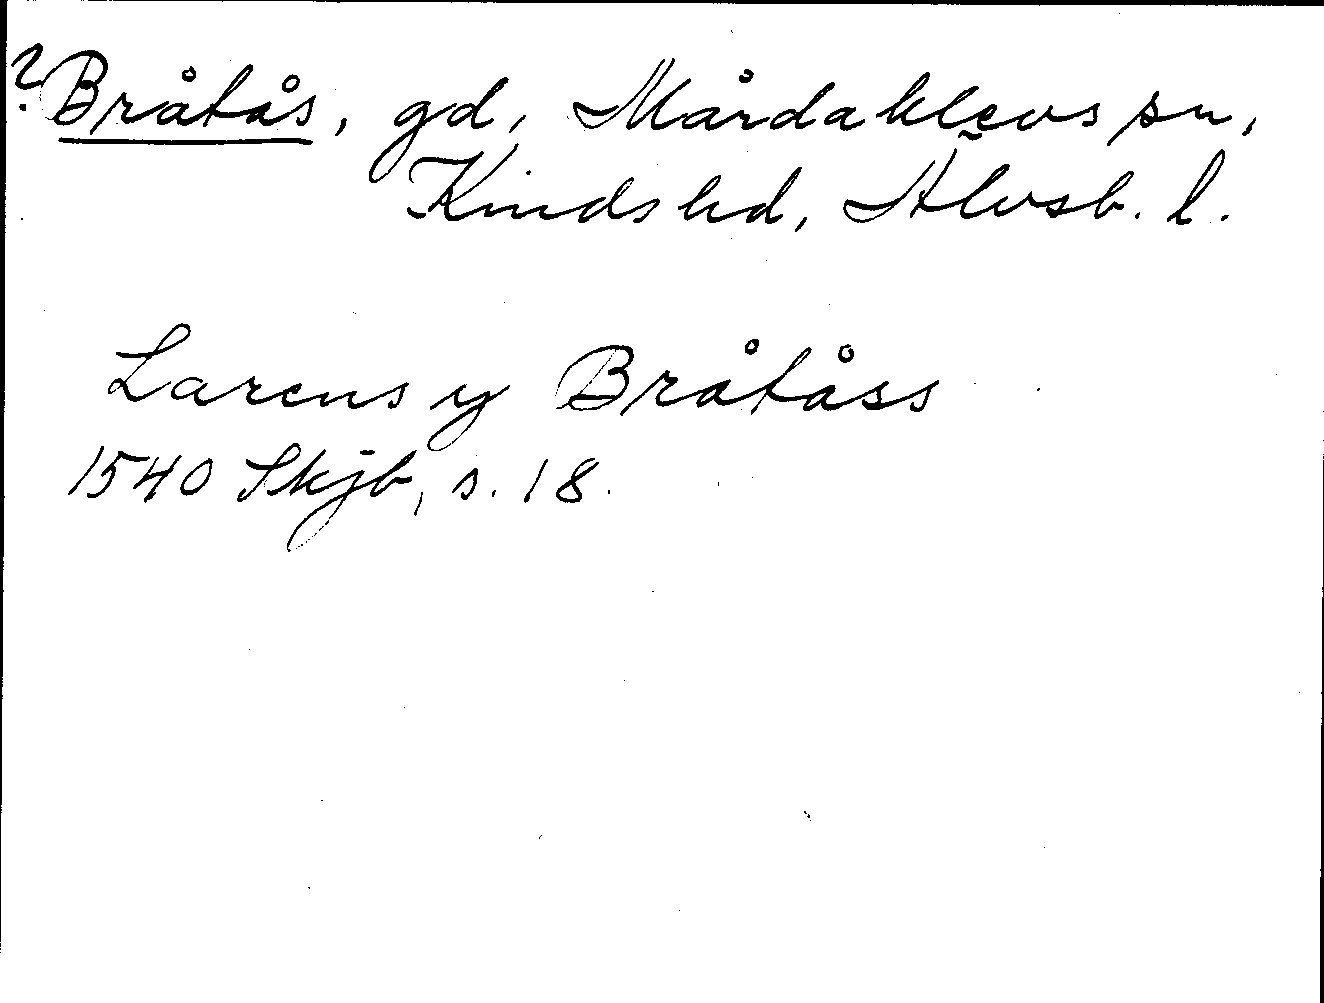 ? Bråtås, gd, Mårdaklevs sn,
Kinds hd, Älvsb. l.
Larens y Bråtåss
1540 Skjb, s. 18.